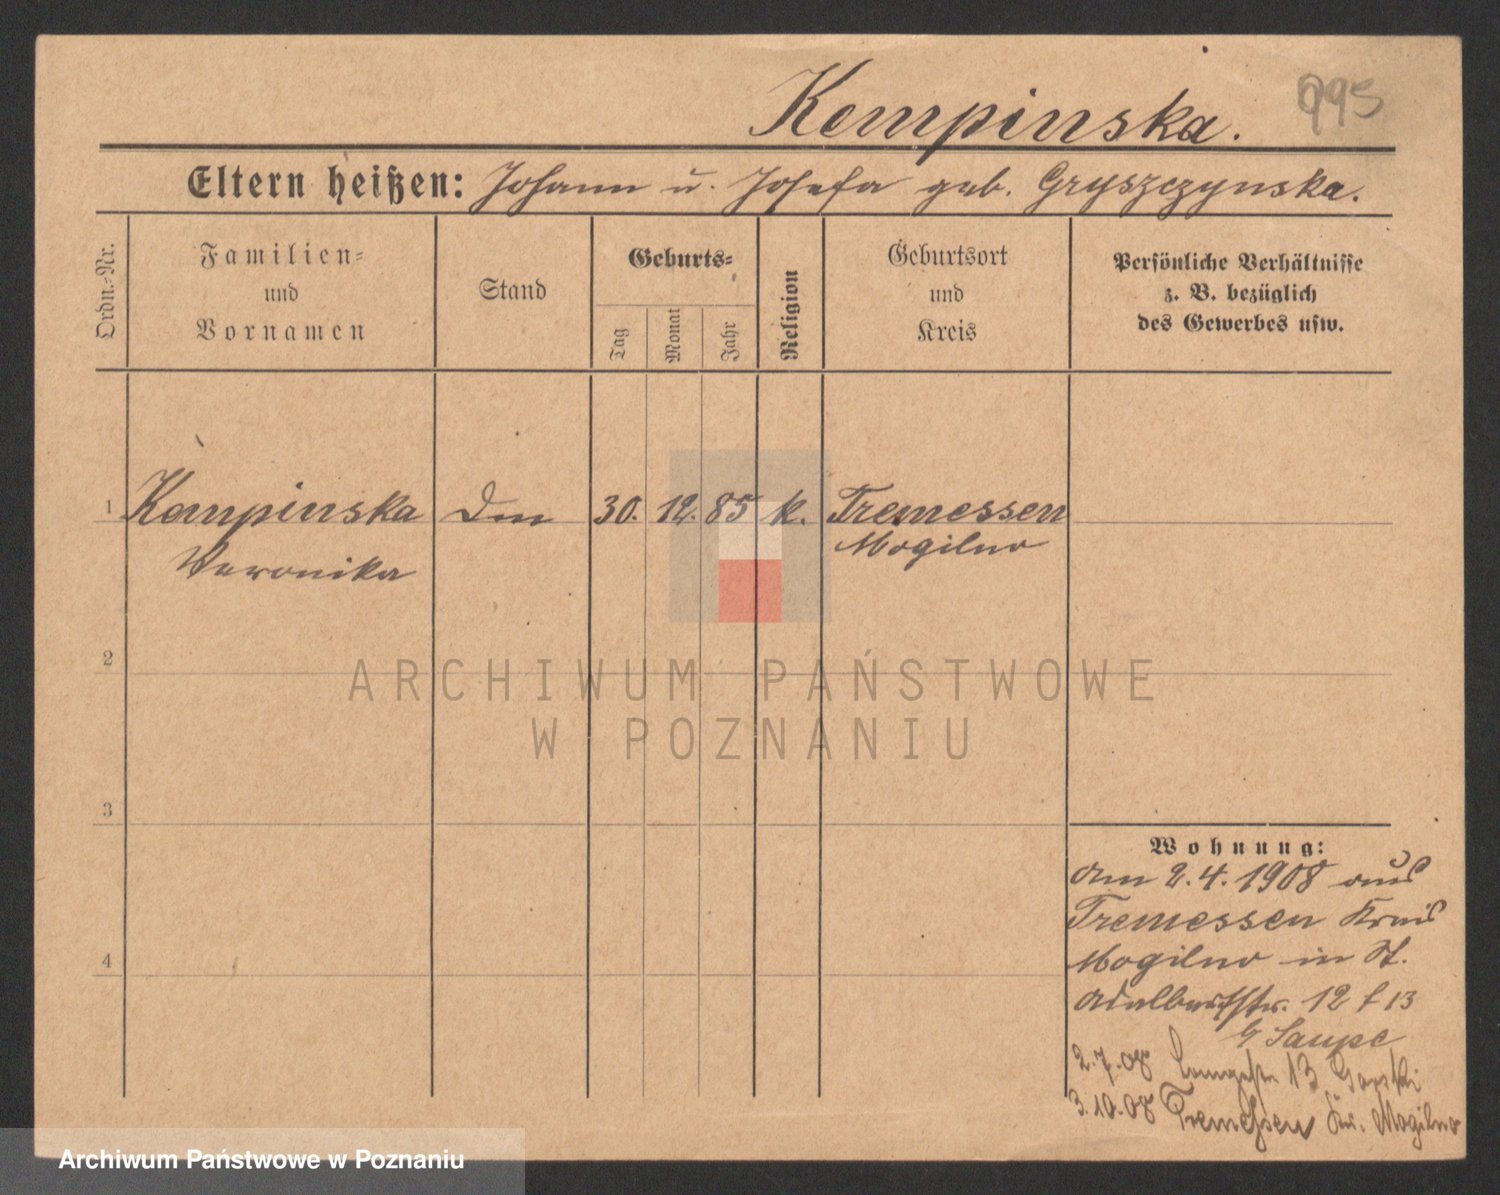 995
Kempinska.
Eltern heißen: Johann u. Josefa geb. Gryszczynska.
Ordn.-Nr.
Familien-
und
Vornamen
Stand
Geburts-
Tag
Monat
Jahr
Religion
Geburtsort
und
Kreis
Persönliche Verhältnisse
z. B. bezüglich
des Gewerbes usw.
1 Kempinska 30. 12. 85 k. Tremessen
Weronika Mogilno
2
3
4
Wohnung:
Am 2.4.1908 aus
Tremessen Kreis
Mogilno in St.
Adalbertstr. 12 / 13
b/ Saupe
2.7.08 Langestr 13 Gorski
3.10.08 Tremessen Kr. Mogilno
ARCHIWUM PAŃSTWOWE
W POZNANIU
Archiwum Państwowe w Poznaniu